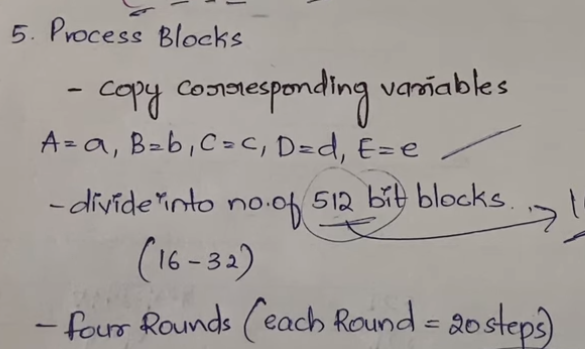 5. Process Blocks
- copy corresponding variables
A=a, B=b, C=c, D=d, E=e
- divide into no.of 512 bit blocks.
(16-32)
- four Rounds (each Round = 20 steps)